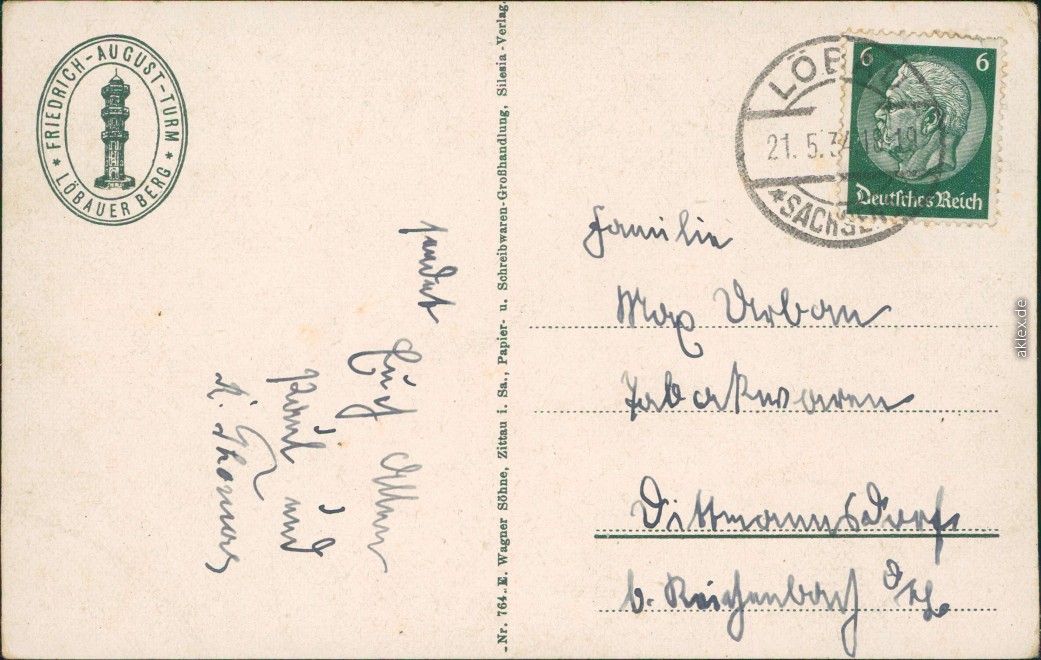 ★ FRIEDRICH-AUGUST-TURM ★
LÖBAUER BERG
sendet
Euch Allen
und
Thomas
-Nr. 764. E. Wagner Söhne, Zittau i. Sa., Papier- u. Schreibwaren-Großhandlung, Silesia-Verlag.
LÖB
21. 5. 34
★SACHSEN
6 6
Deutsches Reich
Familie
Max Urban
Tabakwaren
Dittmannsdorf
b. Reichenbach
aklex.de